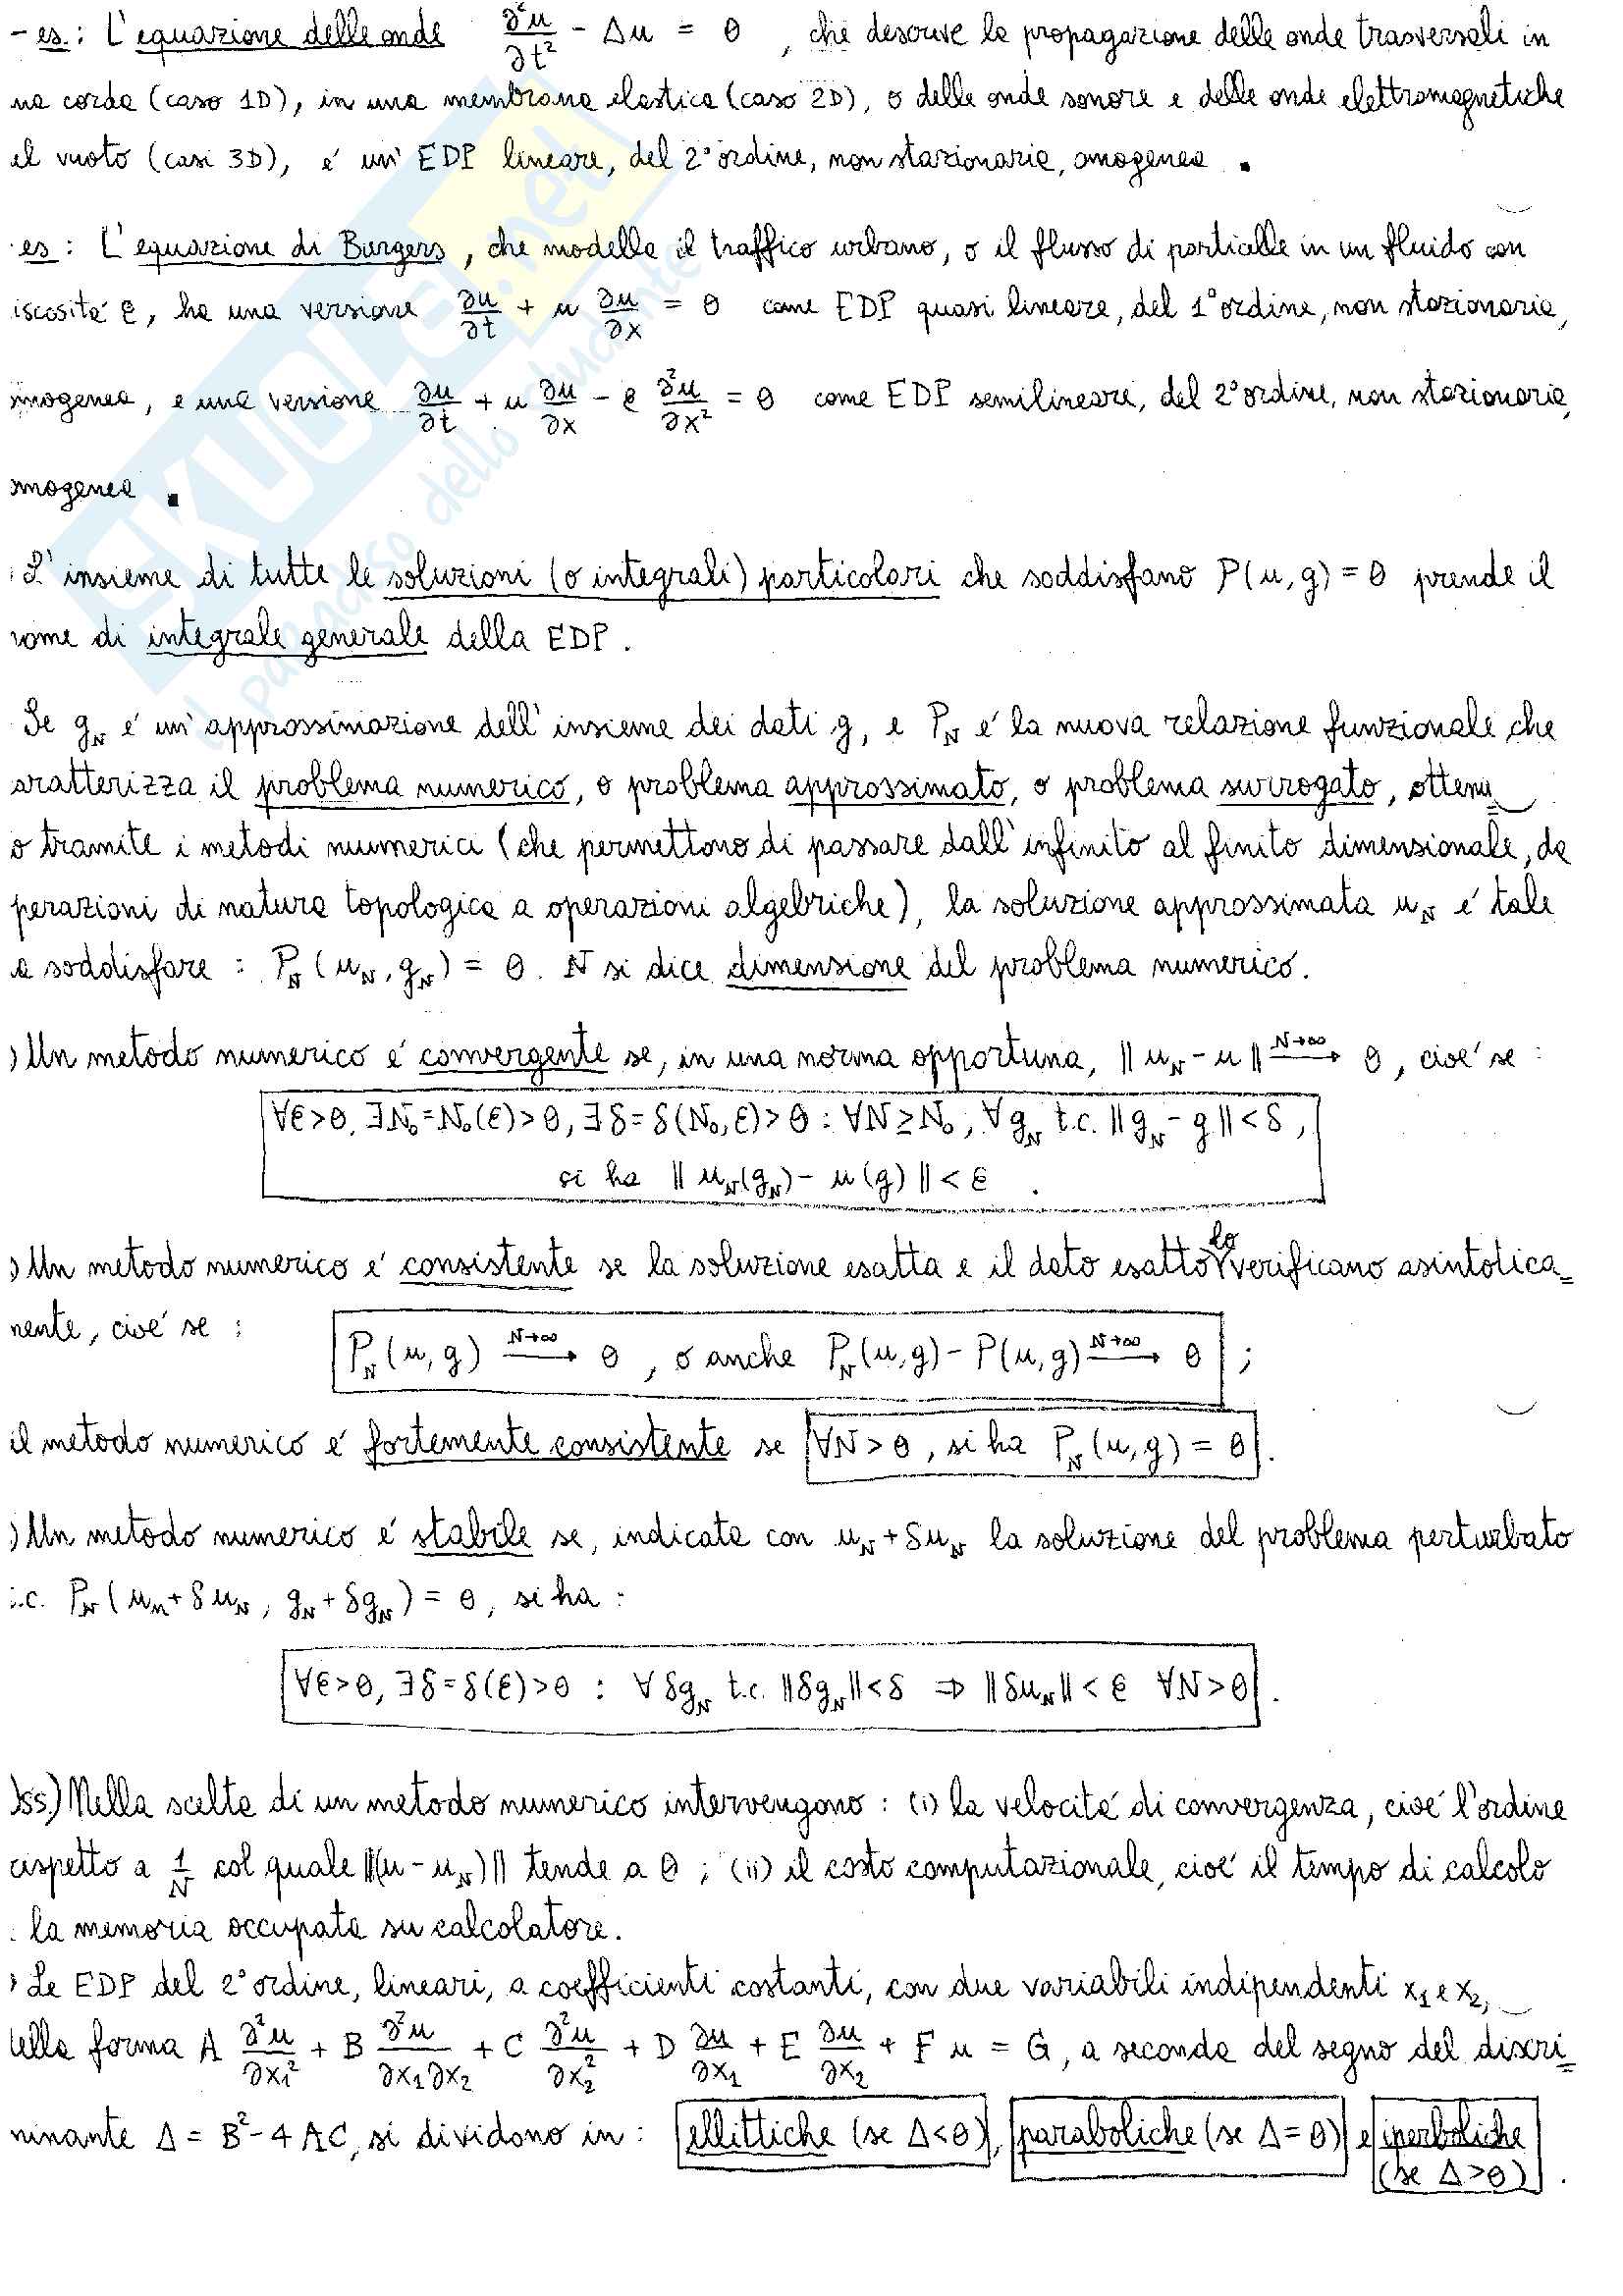 - es.: L'equazione delle onde ∂²u/∂t² - Δu = 0, che descrive la propagazione delle onde trasversali in
na corda (caso 1D), in una membrana elastica (caso 2D), o delle onde sonore e delle onde elettromagnetiche
el vuoto (casi 3D), é un' EDP lineare, del 2° ordine, non stazionaria, omogenea .
es: L'equazione di Burgers, che modella il traffico urbano, o il flusso di particelle in un fluido con
iscositá ε, ha una versione ∂u/∂t + u ∂u/∂x = 0 come EDP quasi lineare, del 1° ordine, non stazionaria,
mogenea, e una versione ∂u/∂t + u ∂u/∂x - ε ∂²u/∂x² = 0 come EDP semilineare, del 2° ordine, non stazionaria,
mogenea .
L'insieme di tutte le soluzioni (o integrali) particolari che soddisfano P(u,g) = 0 prende il
nome di integrale generale della EDP.
Se g_N é un'approssimazione dell'insieme dei dati g, e P_N é la nuova relazione funzionale che
aratterizza il problema numerico, o problema approssimato, o problema surrogato, ottenu=
o tramite i metodi numerici (che permettono di passare dall'infinito al finito dimensionale, da
perazioni di natura topologica a operazioni algebriche), la soluzione approssimata u_N é tale
a soddisfare : P_N(u_N, g_N) = 0. N si dice dimensione del problema numerico.
) Un metodo numerico é convergente se, in una norma opportuna, ‖u_N - u‖ →(N→∞) 0, cioé se :
∀ε>0, ∃N₀=N₀(ε)>0, ∃δ=δ(N₀,ε)>0 : ∀N≥N₀, ∀g_N t.c. ‖g_N - g‖<δ,
si ha ‖u_N(g_N) - u(g)‖<ε .
) Un metodo numerico é consistente se la soluzione esatta e il dato esatto lo verificano asintotica=
mente, cioé se :
P_N(u,g) →(N→∞) 0, o anche P_N(u,g) - P(u,g) →(N→∞) 0 ;
il metodo numerico é fortemente consistente se ∀N>0, si ha P_N(u,g) = 0.
) Un metodo numerico é stabile se, indicata con u_N+δu_N la soluzione del problema perturbato
t.c. P_N(u_n+δu_N, g_N+δg_N) = 0, si ha :
∀ε>0, ∃δ=δ(ε)>0 : ∀δg_N t.c. ‖δg_N‖<δ ⇒ ‖δu_N‖<ε ∀N>0.
ss.) Nella scelta di un metodo numerico intervengono : (i) la velocitá di convergenza, cioé l'ordine
rispetto a 1/N col quale ‖(u - u_N)‖ tende a 0 ; (ii) il costo computazionale, cioé il tempo di calcolo
la memoria occupata su calcolatore.
) Le EDP del 2° ordine, lineari, a coefficienti costanti, con due variabili indipendenti x₁ e x₂,
della forma A ∂²u/∂x₁² + B ∂²u/∂x₁∂x₂ + C ∂²u/∂x₂² + D ∂u/∂x₁ + E ∂u/∂x₂ + F u = G, a seconda del segno del discri=
minante Δ = B² - 4AC, si dividono in : ellittiche (se Δ<0), paraboliche (se Δ=0) e iperboliche
(se Δ>0).